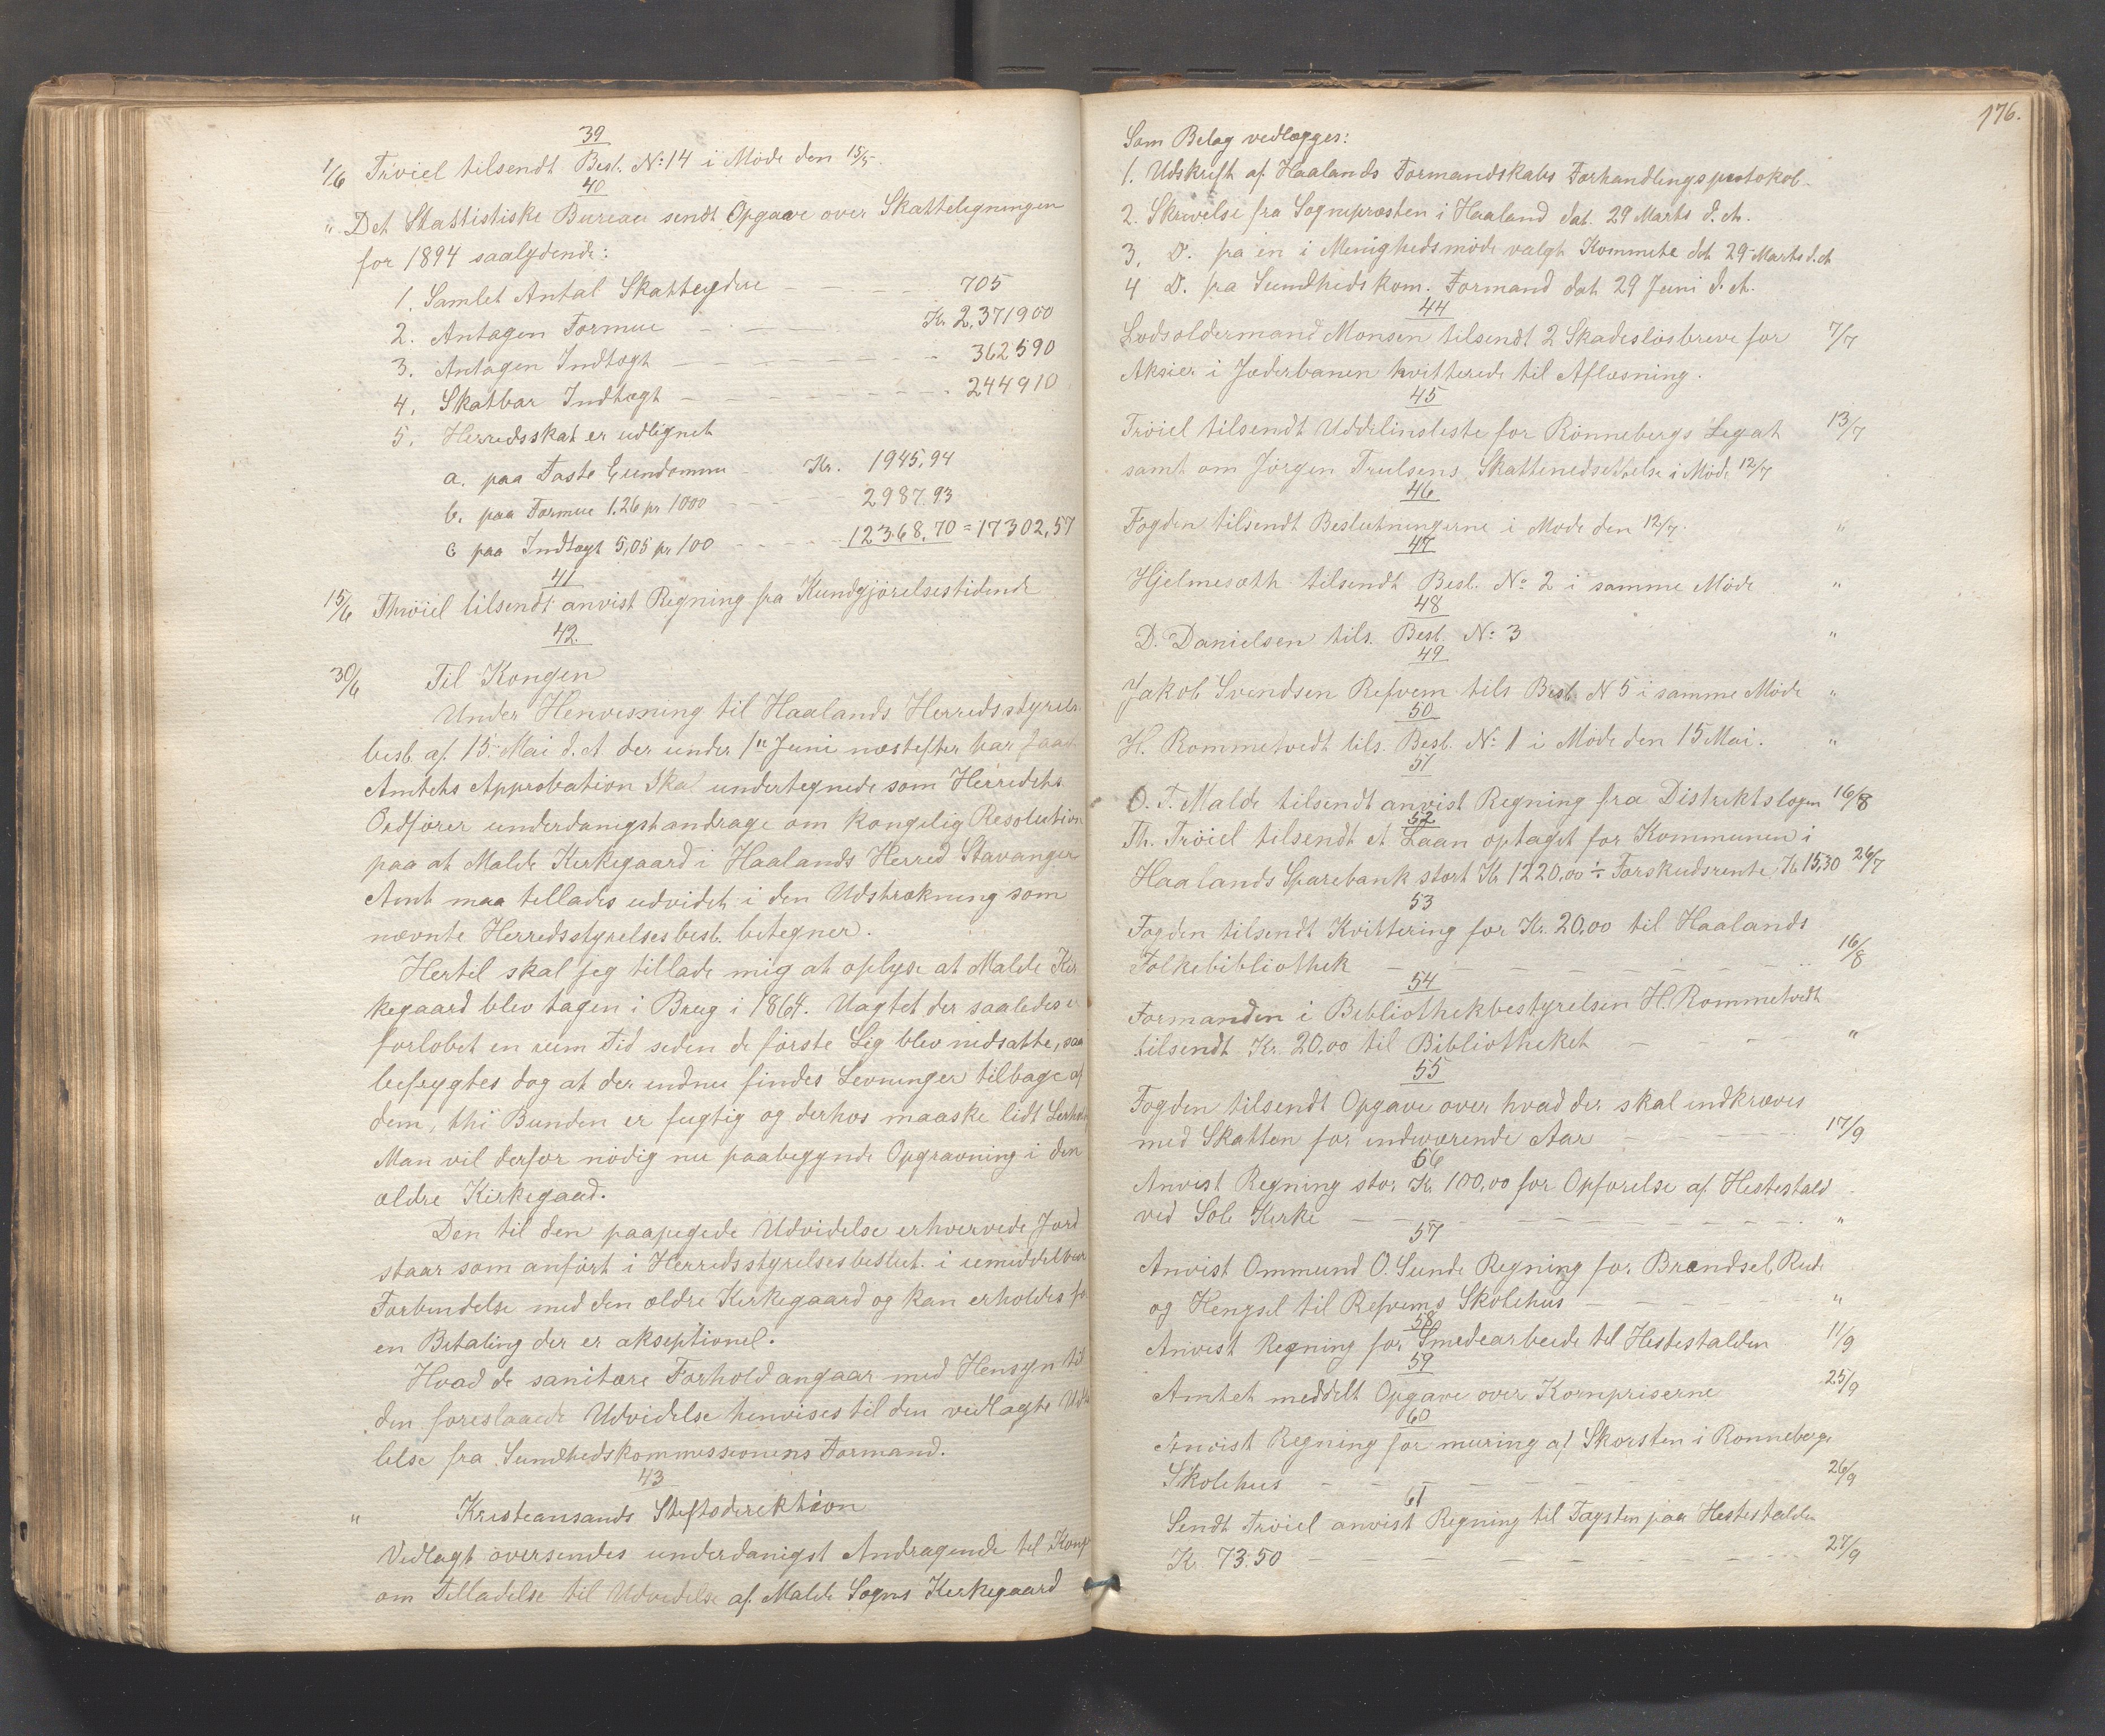 39
1/6 Tröiel tilsendt Besl. No: 14 i Møde den 15/5.
40
" Det Stattistiske Bureau sendt Opgave over Skattelegningen
for 1894 saalydende:
1. Samlet Antal Skatteydere - - - - 705
2. Antagen Formue - - - - Kr. 2,371900
3. Antagen Indtægt - - - - - - - 362590
4. Skatbar Indtægt - - - - - - - 244910
5. Herredsskat er udlignet
a. paa Faste Eiendomme - Kr. 1945,94
b. paa Formue 1.26 pr 1000 - - - - 2987.93
c paa Indtægt 5,05 pr 100 - - - - 12368,70 = 17302,57
41
15/6 Thröiel tilsendt anvist Regning fra Kundgjørelsestidende
42.
30/6 Til Kongen
Under Henvisning til Haalands Herredsstyrels
besl. af 15. Mai d. A. der under 1ste Juni næstefter har faaet
Amtets Approbation skal undertegnede som Herredets
Ordfører underdanigst andrage om kongelig Resolution
paa at Malde Kirkegaard i Haalands Herred Stavanger
Amt maa tillades udvidet i den Udstrækning som
nævnte Herredsstyrelsesbesl. betegner.
Hertil skal jeg tillade mig at oplyse at Malde Kir
kegaard blev tagen i Brug i 1864. Uagtet der saaledes er
forløbet en rum Tid siden de første Lig blev nedsatte, saa
befrygtes dog at der endnu findes Levninger tilbage af
dem, thi Bunden er fugtig og derhos maaske lidt
Man vil derfor nødig nu paabegynde Opgravning i den
ældre Kirkegaad.
Den til den paapegede Udvidelse erhvervede Jord
staar som anført i Herredsstyrelsesbeslut. i umiddelbar
Forbindelse med den ældre Kirkegaard og kan erholdes for
en Betaling der er akseptionel.
Hvad de sanitære Forhold angaar med Hensyn til
den foreslaaede Udvidelse henvises til den vedlagte
lelse fra Sundhedskommissionens Formand.
43
" Kristiansands Stiftsdirektion
Vedlagt oversendes underdanigst Andragende til Kong
om Tilladelse til Udvidelse af Malde Sogns Kirkegaard
176.
Som Belag vedlægges:
1. Udskrift af Haalands Formandskabs Forhandlingsprotokol
2. Skrivelse fra Sognepræsten i Haaland dat. 29 Marts d. A.
3. D. fra en i Menighedsmøde valgt Kommete dat 29 Marts d. A
4 D. fra Sundhedskom. Formand dat 29 Juni d. A.
44
Lodsoldermand Monsen tilsendt 2 Skadesløsbreve for 7/7
Aksier i Jæderbanen kvitterede til Aflæsning.
45
Tröiel tilsendt Uddelinsliste for Rönnebergs Legat 13/7
samt om Jörgen Trulsens Skattenedsettelse i Møde 12/7
46
Fogden tilsendt Beslutningerne i Møde den 12/7. "
47
Hjelmesæth tilsendt Besl. No 2 i samme Møde "
48
D. Danielsen tils. Besl. No: 3 "
49
Jakob Svendsen Refvem tils Besl. N 5 i samme Møde "
50
H. Rommetvedt tils. Besl. No: 1 i Møde den 15 Mai. "
51
O. T. Malde tilsendt anvist Regning fra Distriktslægen 16/8
52
Th. Tröiel tilsendt et Laan optaget for Kommunen i
Haalands Sparebank stort Kr 1220,00 ÷ Forskudsrente Kr 15,30 26/7
53
Fogden tilsendt Kvittering for Kr. 20,00 til Haalands
Folkebibliothek - - - - - - - 16/8
54
Formanden i Bibliothekbestyrelsen H. Rommetvedt
tilsendt Kr. 20,00 til Bibliotheket - - - - "
55
Fogden tilsendt Opgave over hvad der skal indkræves
med Skatten for indeværende Aar - - - - 17/9
56
Anvist Regning stor Kr 100,00 for Opførelse af Hestestald
ved Sole Kirke - - - - - - - "
57
Anvist Ommund O. Sunde Regning for Brændsel, Rude
og Hengsel til Refvems Skolehus - - - - "
58
Anvist Regning for Smedearbeide til Hestestalden 11/9
59
Amtet meddelt Opgave over Kornpriserne 25/9
60
Anvist Regning for muring af Skorsten i Ronnebergs
Skolehus - - - - - - - 26/9
61
Sendt Tröiel anvist Regning til Tagsten paa Hestestalden
Kr. 73.50 - - - - - - - 27/9